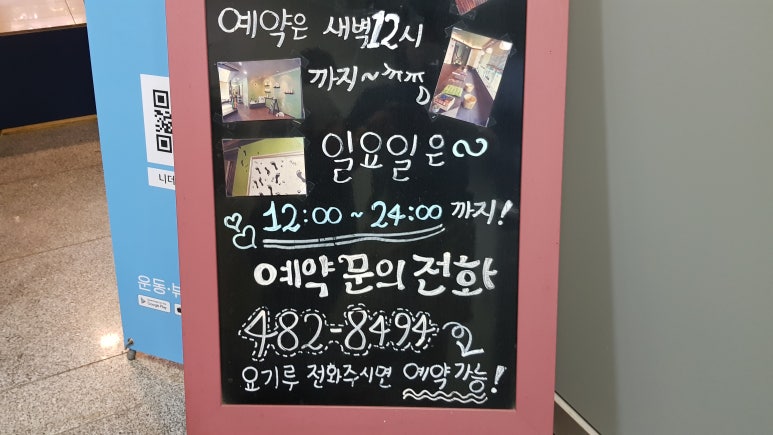 예약은 새벽12시
까지~ㅉㅉㅉ
일요일은~
12:00 ~ 24:00 까지!
예약 문의 전화
482-8494
요기루 전화주시면 예약가능!
니데
운동·부
Google Play